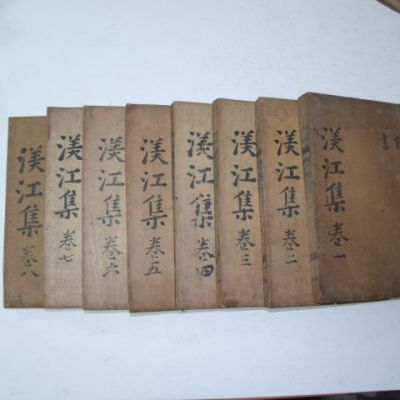 書
渼江集 卷一
渼江集 卷二
渼江集 卷三
渼江集 卷四
渼江集 卷五
渼江集 卷六
渼江集 卷七
渼江集 卷八